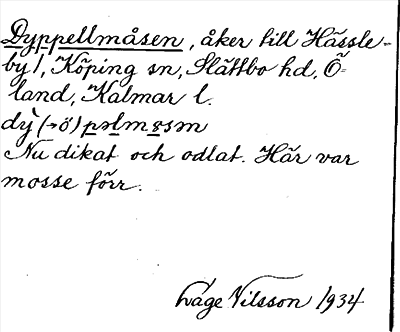 Dyppellmåsen, åker till Hässle-
by 1, Köping sn, Slättbo hd, Ö-
land, Kalmar l.
dỳ(→ö)pəlmɞsən
Nu dikat och odlat. Här var
mosse förr.
Åge Nilsson 1934